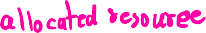 allocated resource